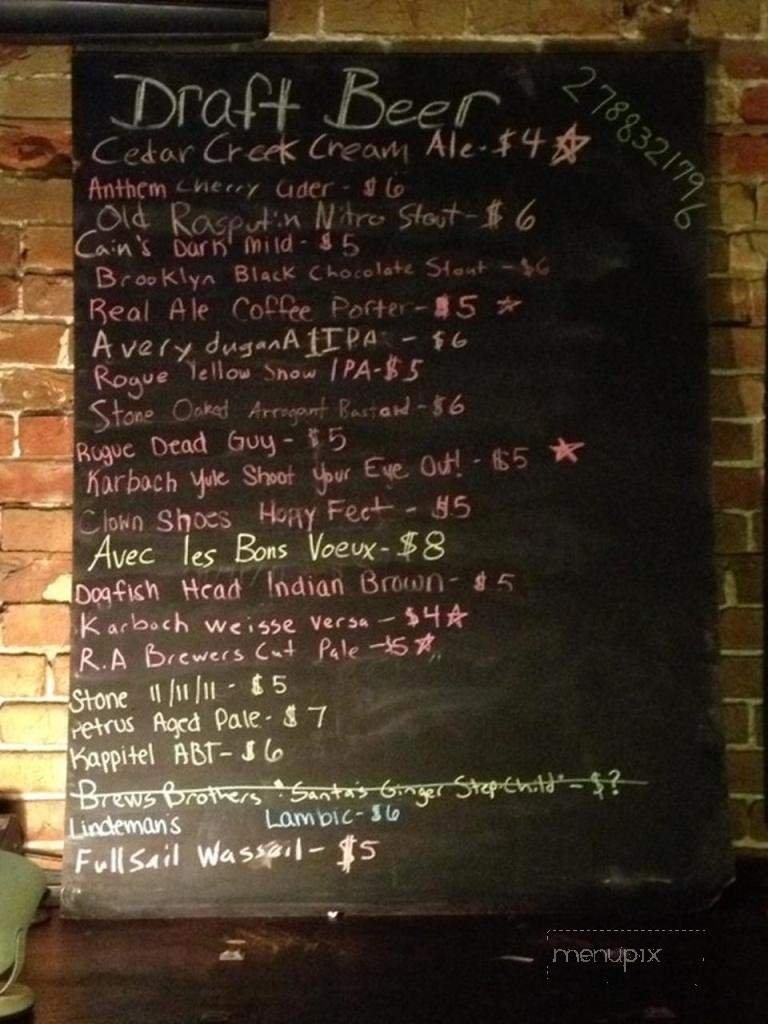 Draft Beer
2788321796
Cedar Creek Cream Ale - $4
Anthem Cherry Cider - $6
Old Rasputin Nitro Stout - $6
Cain's Dark Mild - $5
Brooklyn Black Chocolate Stout - $6
Real Ale Coffee Porter - $5
Avery duganA IIPA - $6
Rogue Yellow Snow IPA - $5
Stone Oaked Arrogant Bastard - $6
Rogue Dead Guy - $5
Karbach Yule Shoot Your Eye Out! - $5
Clown Shoes Feet - $5
Avec les Bons Voeux - $8
Dogfish Head Indian Brown - $5
Karbach Weisse Versa - $4
R.A Brewers Cut Pale - $5
Stone 11/11/11 - $5
Petrus Aged Pale - $7
Kappitel ABT - $6
Brews Brothers "Santa's Ginger Step-Child" - $?
Lindeman's Lambic - $6
Full Sail Wassail - $5
menupix